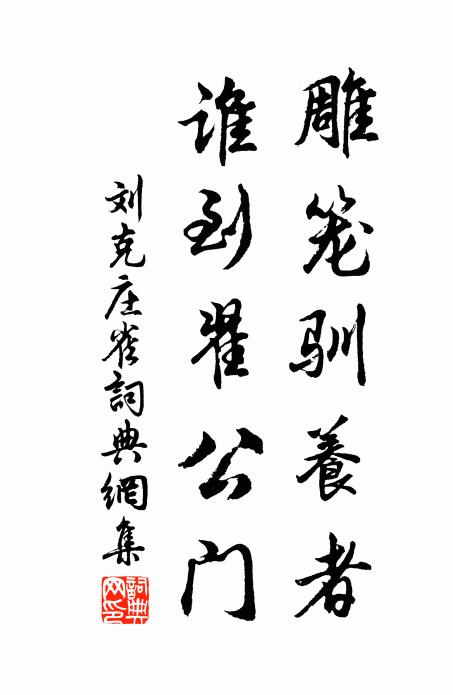 雕笼驯養者
谁到翟公门
刘克庄雀詞典網集
詞典网印